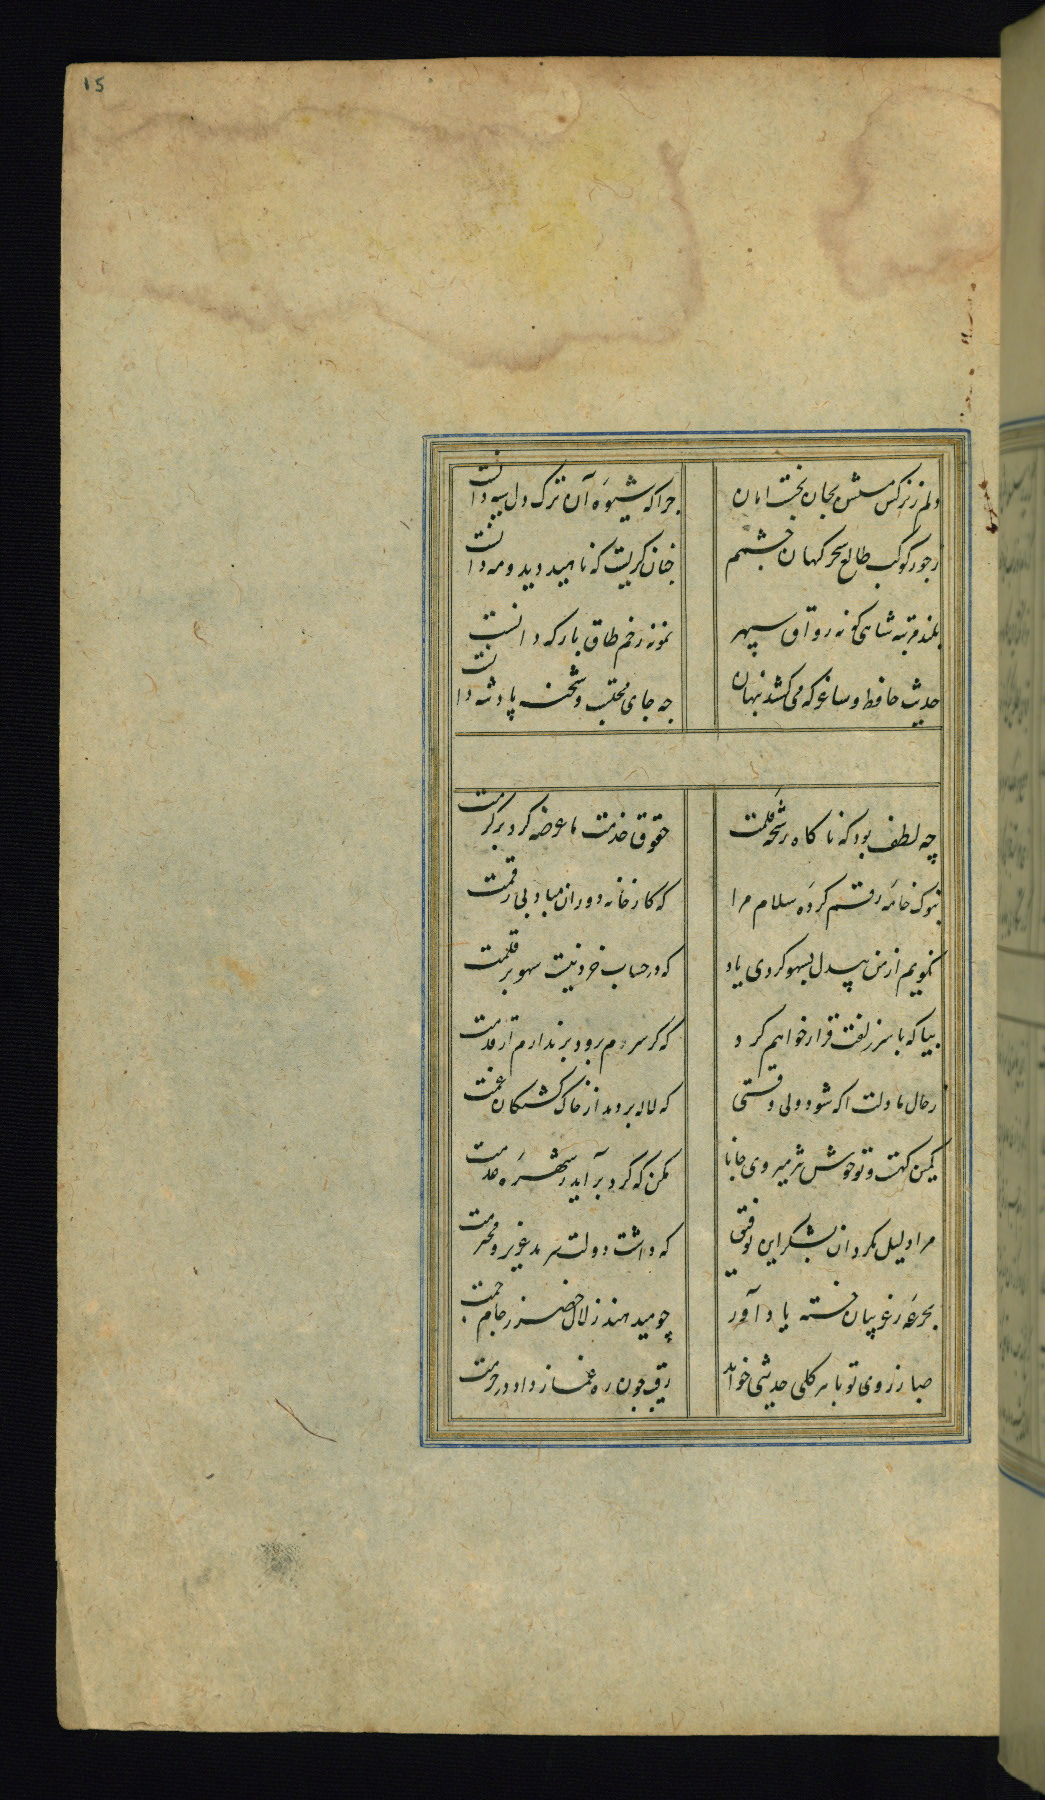 15
دلم ز نرکس مستش بجان نخست امان چراکه شیوهٔ آن ترک دل سیه دانست
ز جور کوکب طالع سحرکهان چشمم چنان کریست که ناهید دید و مه دانست
بلند مرتبه شاهی که نه رواق سپهر نمونهٔ ز خم طاق بارکه دانست
حدیث حافظ و ساغر که می کشد نهان چه جای محتسب و شحنه پادشه دانست
چه لطف بود که ناکاه رشحهٔ قلمت حقوق خدمت ما عرضه کرد بر کرمت
بنوک خامه رقم کردهٔ سلام مرا که کارخانه دوران مباد بی رقمت
نکویم از من بیدل بسهو کردی یاد که در حساب خرد نیست سهو بر قلمت
بیا که با سر زلفت قرار خواهم کرد که کر سرم برود بر ندارم از قدمت
ز حال ما دلت آکه شود ولی وقتی که لاله بردمد از خاک کشتکان غمت
کمین کهست و تو خوش تیز میروی جانا مکن که کرد برآید ز شهره عدمت
مرا ذلیل مکردان بشکر این توفیق که داشت دولت سرمد عزیز و محترمت
بجرعهٔ ز غریبان خسته یاد آور چو میدهند زلال خضر ز جام جمت
صبا ز روی تو با هر کلی حدیثی خواند رقیب چون ره غماز داد در حرمت